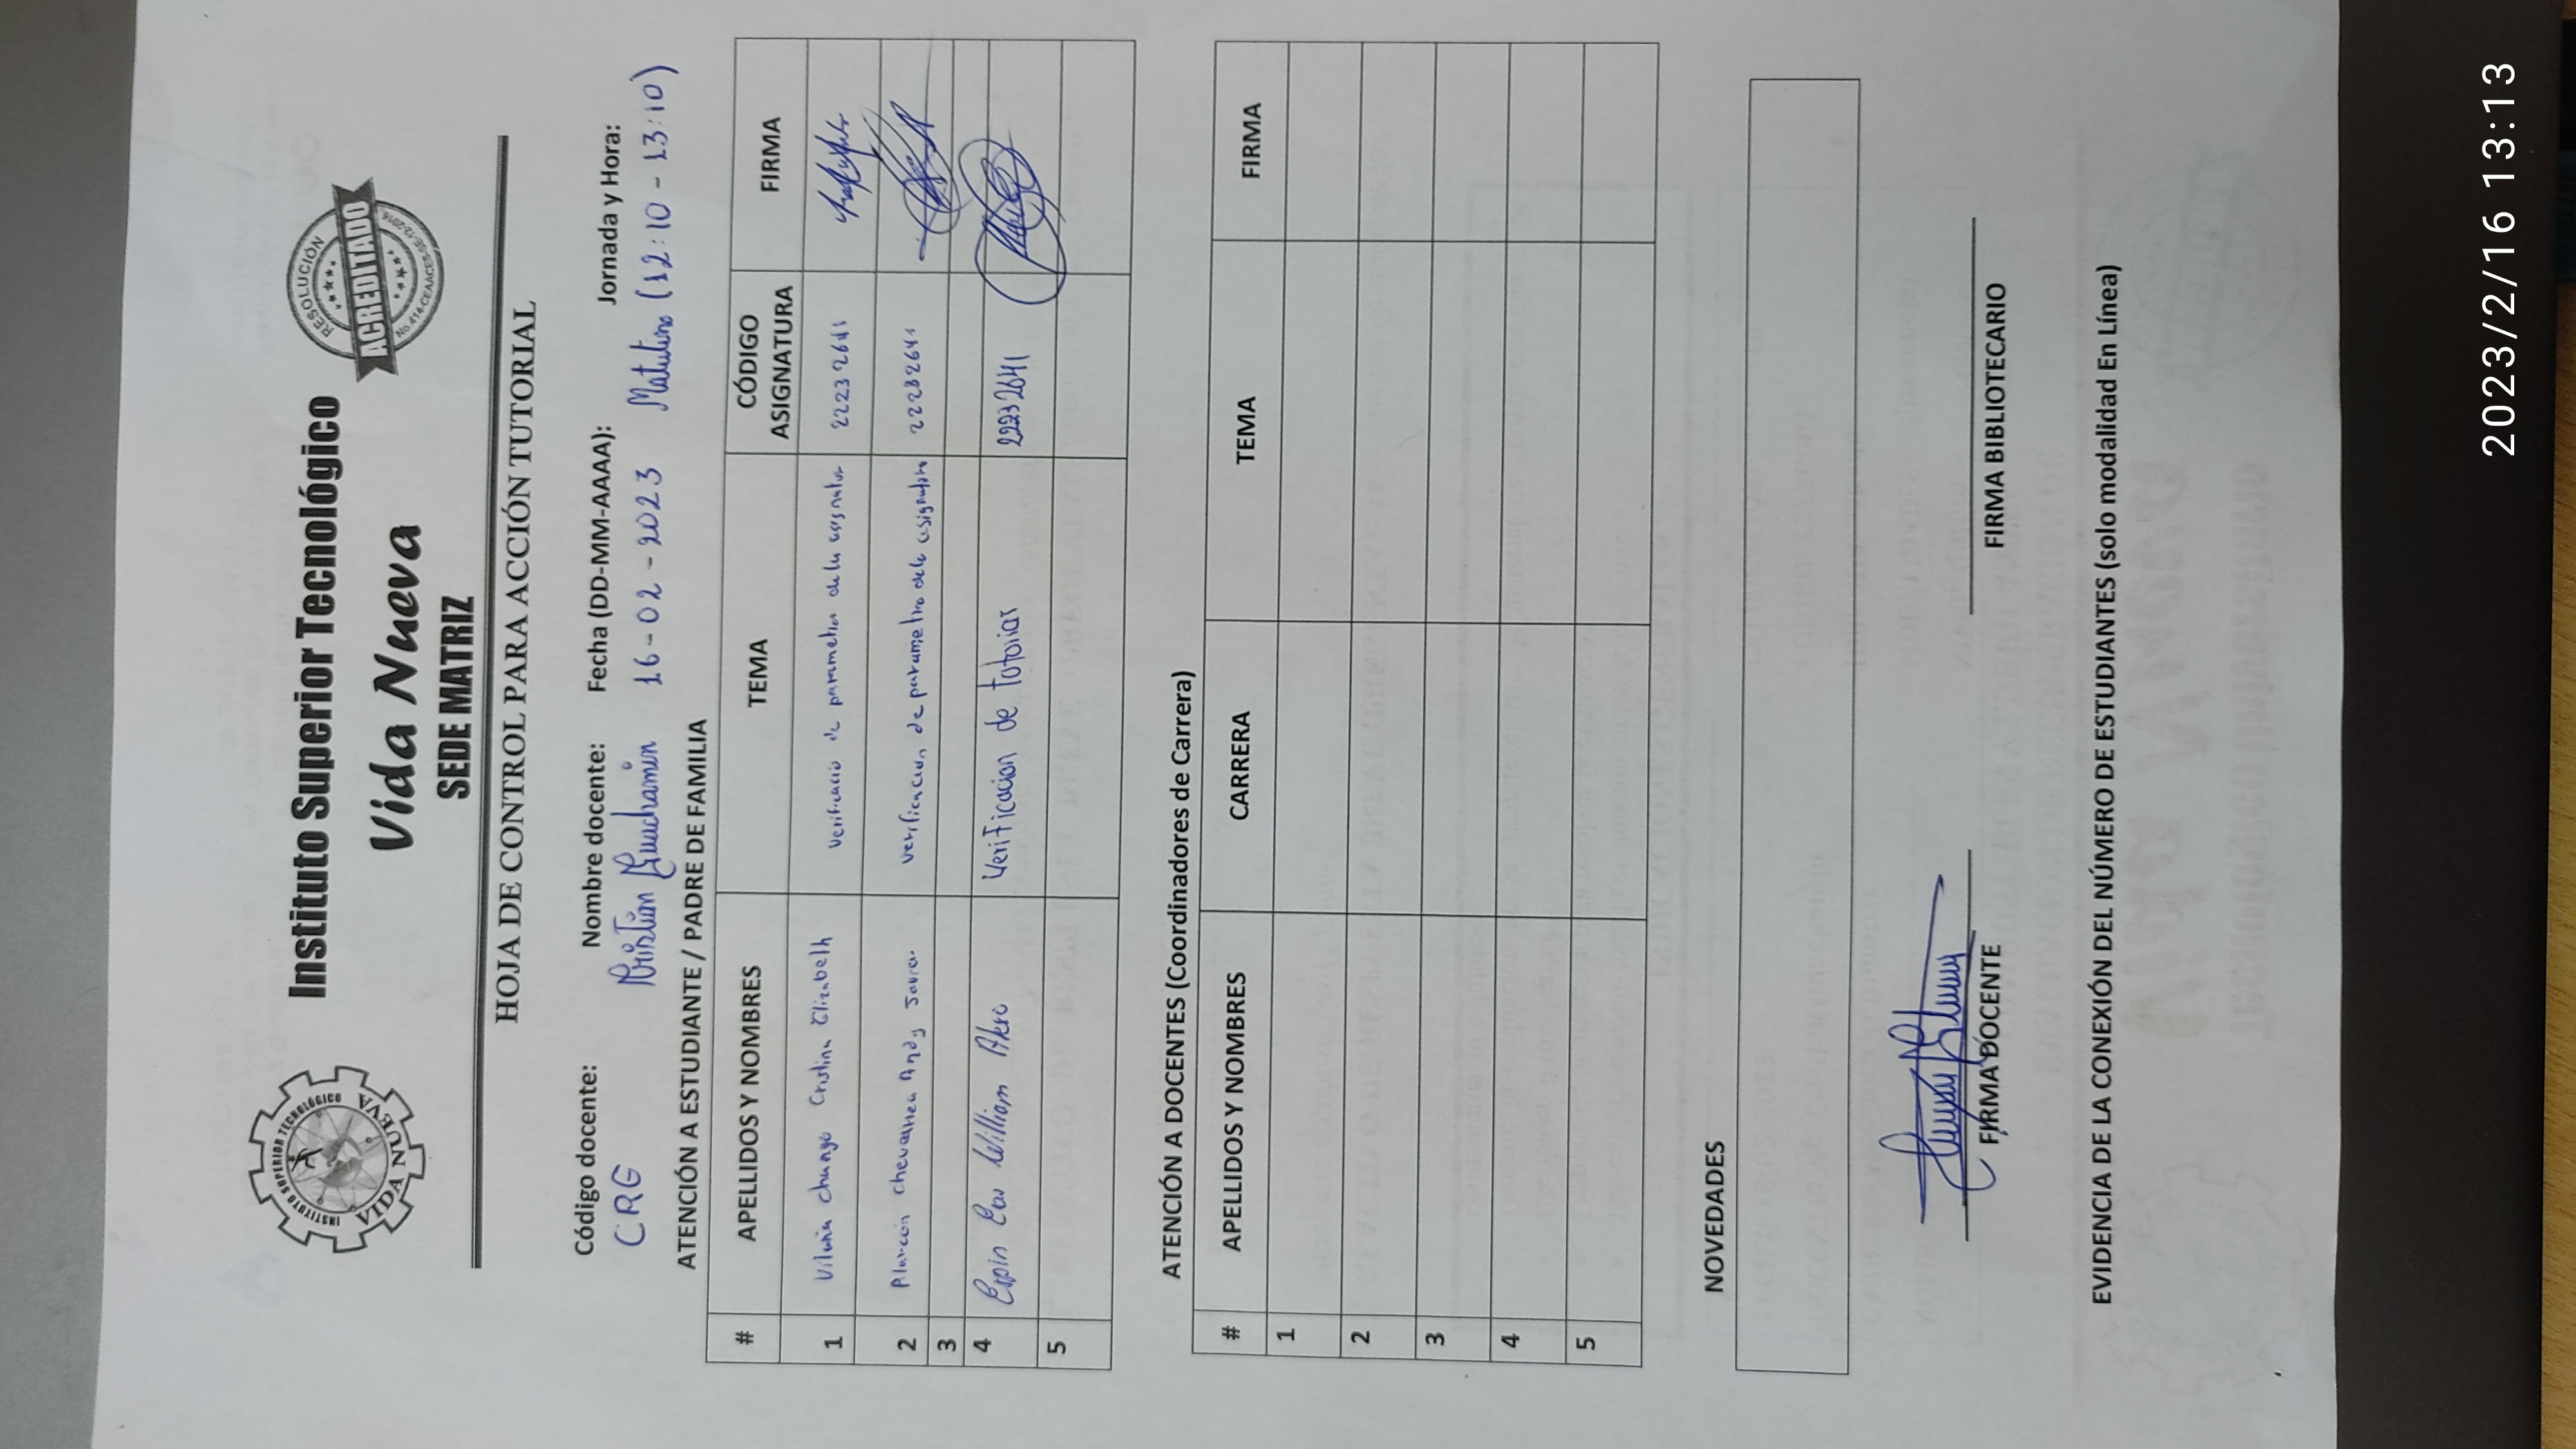 INSTITUTO SUPERIOR TECNOLÓGICO
VIDA NUEVA
Instituto Superior Tecnológico
Vida Nueva
SEDE MATRIZ
RESOLUCIÓN
ACREDITADO
No.414-CEAACES-SE-12-2016
HOJA DE CONTROL PARA ACCIÓN TUTORIAL
Código docente: Nombre docente: Fecha (DD-MM-AAAA): Jornada y Hora:
CRG Kristian Guachamin 16-02-2023 Matutino (12:10 - 13:10)
ATENCIÓN A ESTUDIANTE / PADRE DE FAMILIA
# APELLIDOS Y NOMBRES TEMA CÓDIGO ASIGNATURA FIRMA
1 Vilaña Chango Cristina Elizabeth Verificacio de parametros de la asignatur 22232641
2 Alarcón Andy Javier verificacion de parametro de la asignatura 22232641
3
4 Espin William Verificacion de totorias 22232641
5
ATENCIÓN A DOCENTES (Coordinadores de Carrera)
# APELLIDOS Y NOMBRES CARRERA TEMA FIRMA
1
2
3
4
5
NOVEDADES
FIRMA DOCENTE FIRMA BIBLIOTECARIO
EVIDENCIA DE LA CONEXIÓN DEL NÚMERO DE ESTUDIANTES (solo modalidad En Línea)
2023/2/16 13:13